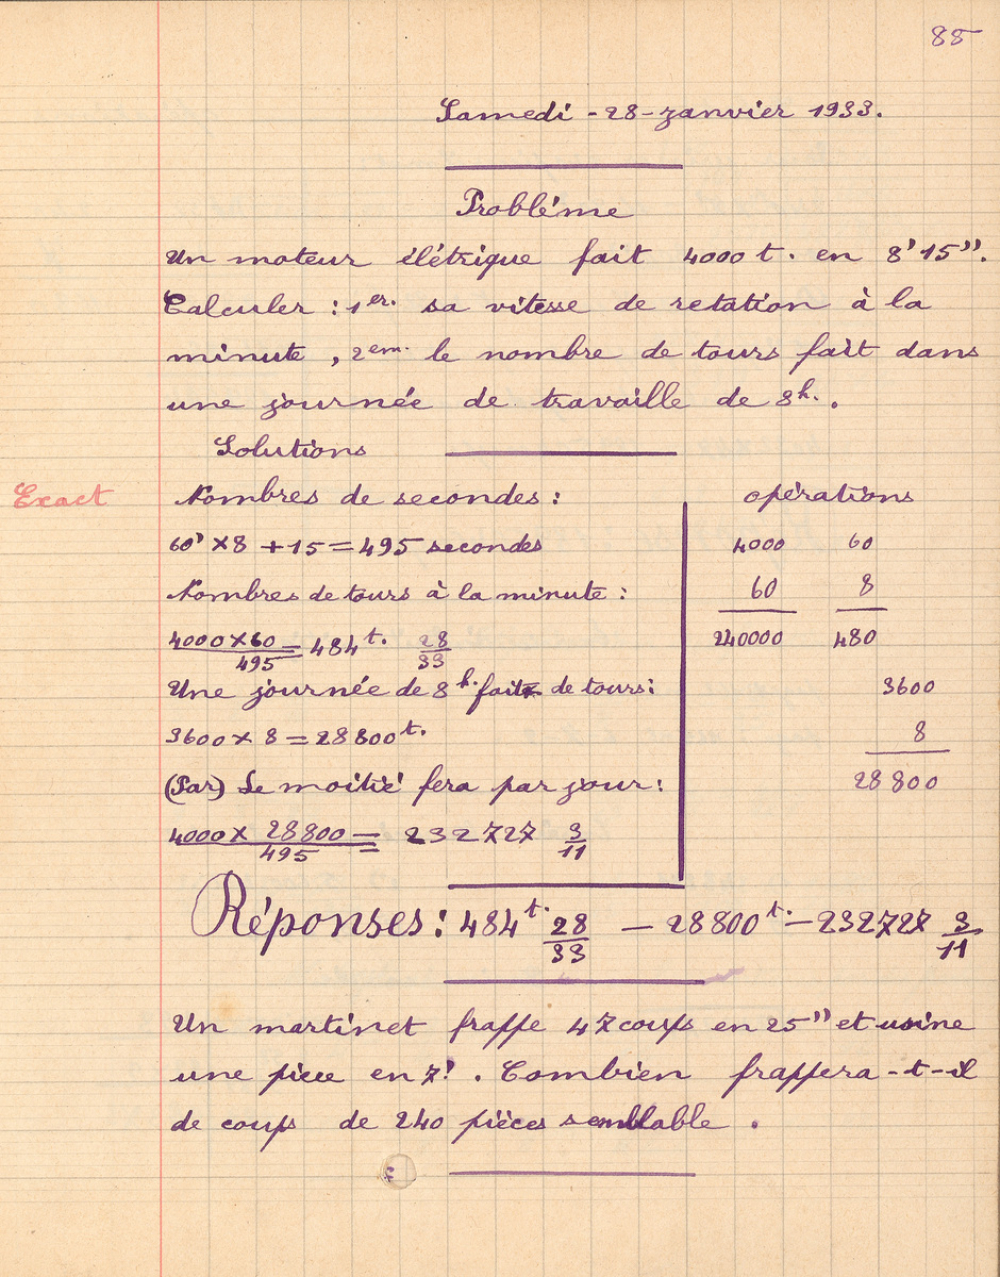 85
Samedi - 28 - janvier 1933.
Probléme
Un moteur élétrique fait 4000 t. en 8' 15".
Calculer : 1er. sa vitesse de retation à la
minute, 2em. le nombre de tours fait dans
une journée de travaille de 8h..
Solutions
Exact
Nombres de secondes :
60' × 8 + 15 = 495 secondes
Nombres de tours à la minute :
4000 × 60 / 495 = 484 t. 28/33
Une journée de 8 h. fait de tours :
3600 × 8 = 28800 t.
(Par) Le moitié fera par jour :
4000 × 28800 / 495 = 232727 3/11
opérations
4000 60
60 8
240000 480
3600
8
28800
Réponses : 484 t. 28/33 — 28800 t. — 232727 3/11
Un martinet frappe 47 coups en 25" et usine
une pièce en 7'. Combien frappera-t-il
de coups de 240 pièces semblable.